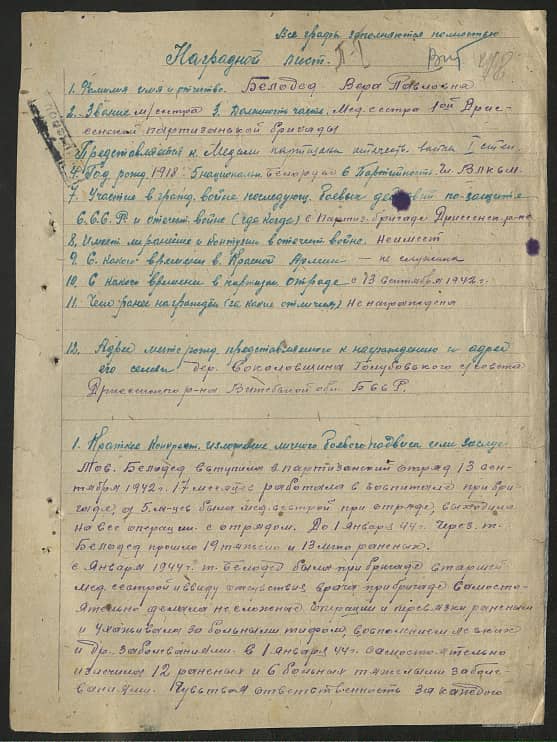 Все графы заполняются полностью
Наградной лист.
1. Фамилия имя и отчество. Белодед Вера Павловна
2. Звание м/сестра 3. Должность часть. Мед. сестра 1ой Дрис-
сенской партизанской бригады
Представляется к Медали партизана отечеств. войны I степ.
4. Год рожд. 1918 5 национальн. Белорус 6 Партийность чл. ВЛКСМ.
7. Участие в гражд. войне последующ. боевых действий по защите
С.С.С.Р. и отечет. войне (где когда) в Партиз. бригаде Дриссенск. р-на
8. Имеет ли ранение и контузии в отечет войне. Не имеет
9. С какого времени в Красной Армии — не служила
10. С какого времени в партизан отряде с 13 Сентября 1942 г.
11. Чем ранее награжден (за какие отличия) Не награждена
12. Адрес место рожд. представляемого к награждению и адрес
его семьи дер. Соколовщина Голубовского с/совета
Дриссенского р-на Витебской обл. БССР.
1. Краткое Конкретн. изложение личного боевого подвига или заслуг
Тов. Белодед вступила в партизанский отряд 13 сен-
тября 1942 г. 17 месяцев работала в госпитале при бри-
гаде, а 5 м-цев была мед. сестрой при отряде, выходила
на все операции с отрядом. До 1 Января 44 г. через т.
Белодед прошло 19 тяжело и 13 легко раненых.
с Января 1944 г. т. Белодед была при бригаде старшей
мед. сестрой и ввиду отсутствия врача при бригаде самосто-
ятельно делала несложные операции и перевязки раненым
и ухаживала за больными тифом, воспалением легких
и др. заболеваниями. в 1 января 44 г. самостоятельно
излечила 12 раненых и 6 больных тяжелыми заболе-
ваниями. Чувствуя ответственность за каждого